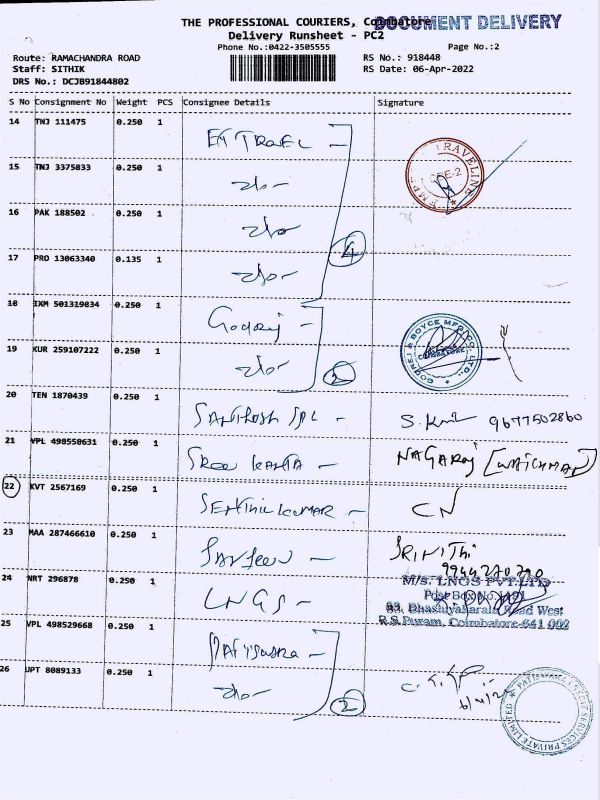 THE PROFESSIONAL COURIERS, Coimbatore
DOCUMENT DELIVERY
Delivery Runsheet - PC2
Phone No.:0422-3505555
Page No.:2
Route: RAMACHANDRA ROAD
RS No.: 918448
Staff: SITHIK
RS Date: 06-Apr-2022
DRS No.: DCJB91844802
S No Consignment No Weight PCS Consignee Details Signature
14 TNJ 111475 0.250 1
TRAVELINE
15 TNJ 3375833 0.250 1
16 PAK 188502 0.250 1
17 PRO 13063340 0.135 1
4
18 IXM 501319834 0.250 1 Godrej
GODREJ & BOYCE MFG. CO. LTD.
COIMBATORE
19 KUR 259107222 0.250 1
2
20 TEN 1870439 0.250 1 9677502860
21 VPL 498550631 0.250 1 NAGARAJ [WATCHMAN]
22 KVT 2567169 0.250 1 SENTHILKUMAR - CN
23 MAA 287466610 0.250 1 SRINITHI
9944270790
24 NRT 296878 0.250 1 LNGS -
M/S. LNGS PVT.LTD
Post Box No.
83, Bhashyakarala Road West
R.S.Puram, Coimbatore-641 002
25 VPL 498529668 0.250 1
26 UPT 8089133 0.250 1
2
SERVICES PRIVATE LIMITED